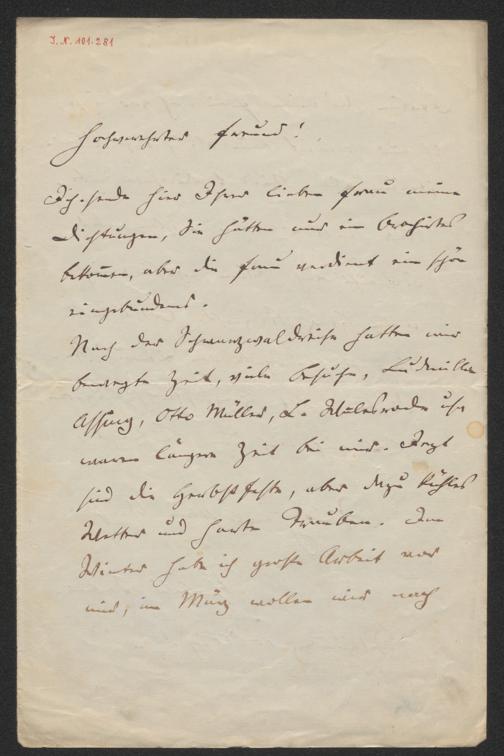 J. N. 101.281
Hochverehrter Freund!
Ich sende hier Ihrer lieben Frau meine
Dichtungen, Sie hätten nur ein Brochirtes
bekommen, aber die Frau verdient ein schön
eingebundenes.
Nach der Schwarzwaldreise hatten wir
bewegte Zeit, viele Besuche, Ludmilla
Assing, Otto Müller, L. Walesrode usw
waren längere Zeit bei mir. Jetzt
sind die Herbstfeste, aber dazu kühles
Wetter und harte Trauben. Im
Winter habe ich große Arbeit vor
mir, im März wollen wir nach